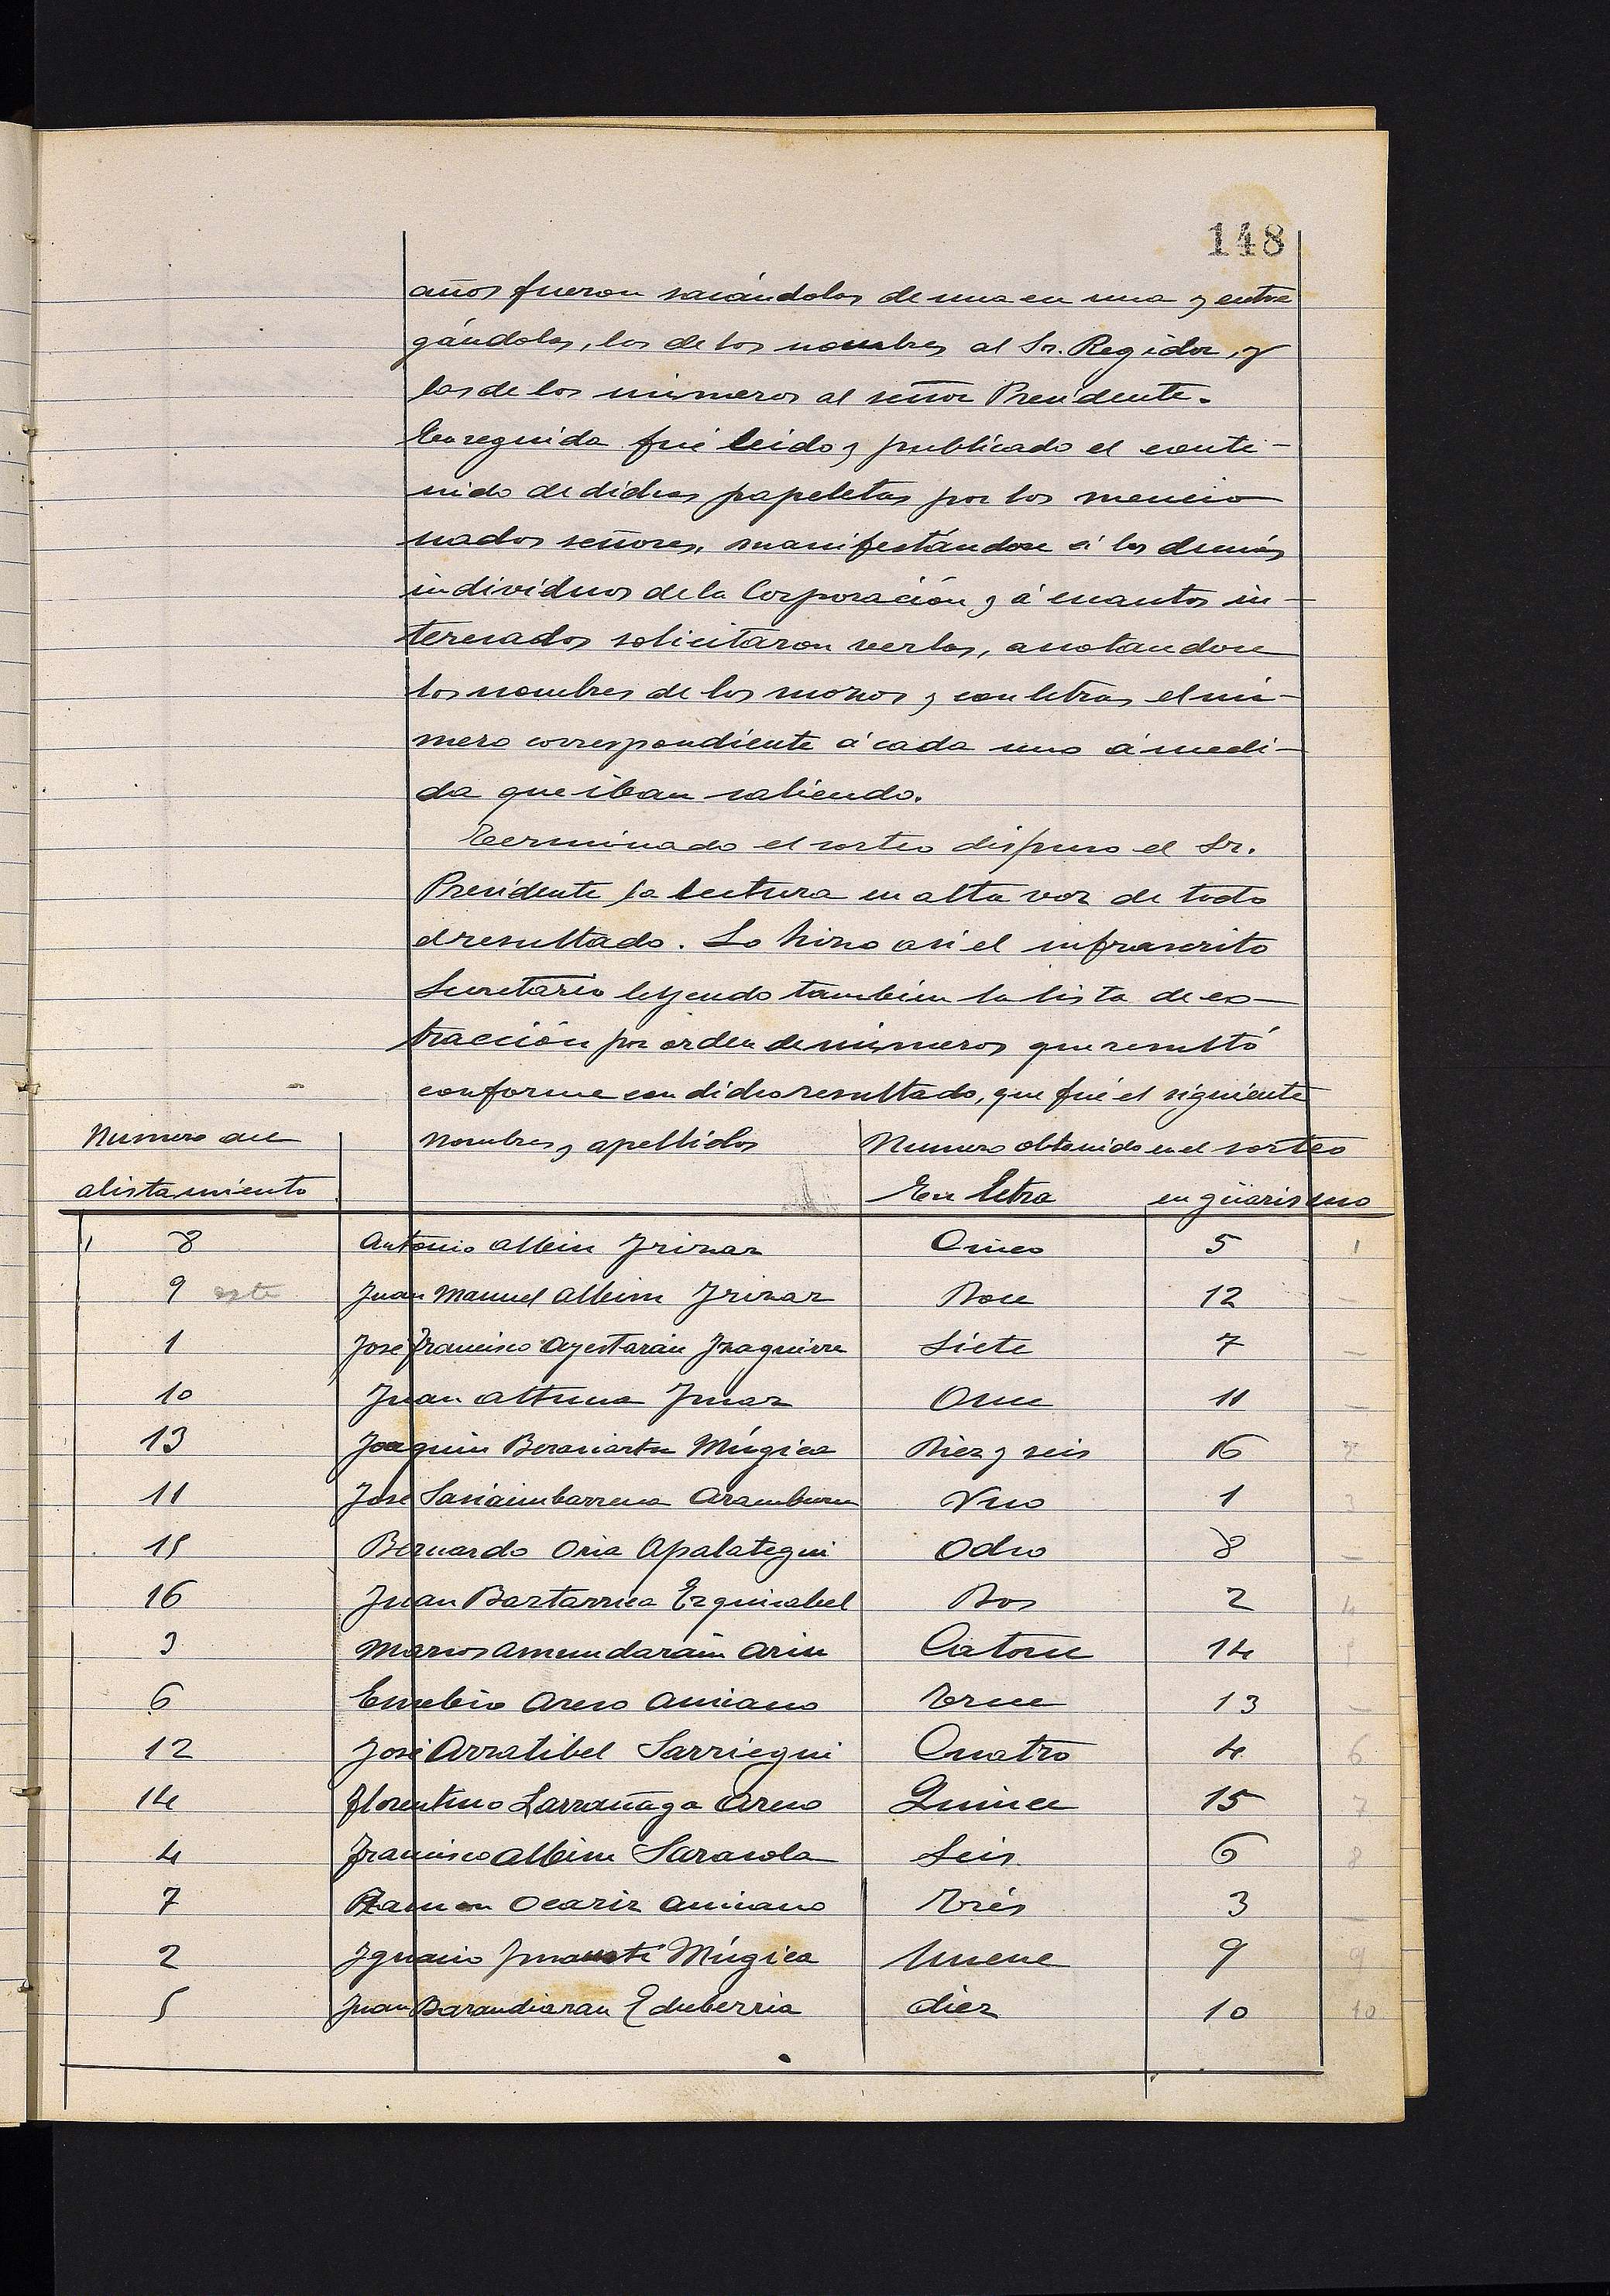 148
años fueron sacándolas de una en una y entre
gándolas, las de los nombres al Sr. Regidor, y
las de los números al señor Presidente.
Enseguida fué leido y publicado el conte-
nido de dichas papeletas por los mencio
nados señores, manifestándose á los demás
individuos de la Corporación y á cuantos in-
teresados solicitaron verlas, anotandose
los nombres de los mozos y con letras el nú-
mero correspondiente á cada uno á medi-
da que iban saliendo.
Terminado el sorteo dispuso el Sr.
Presidente la lectura en alta voz de todo
el resultado. Lo hizo asi el infrascrito
Secretario leyendo tambien la lista de ex-
tracción por orden de números que resultó
conforme con dicho resultado, que fué el siguiente
Numero del nombres y apellidos Numero obtenido en el sorteo
alistamiento En letra en güarismo
8 Antonio Albin Irizar Cinco 5 1
9 este Juan Manuel Albin Irizar Doce 12 -
1 José Francisco Ayestarán Izaguirre Siete 7 -
10 Juan Altuna Once 11 -
13 Joaquin Beraciartu Múgica Diez y seis 16 2
11 José Sasiaimbarrena Aramburu Uno 1 3
15 Bernardo Oria Apalategui Ocho 8 -
16 Juan Bastarrica Ezquiabel Dos 2 4
3 Marcos Amundaráin Arin Catorce 14 5
6 Eusebio Areso Amiano Trece 13 -
12 José Arratibel Sarriegui Cuatro 4 6
14 Florentino Larrañaga Areso Quince 15 7
4 Francisco Albin Sarasola Seis 6 8
7 Ramon Ocariz Amiano Trés 3 -
2 Ignacio Múgica Nueve 9 9
5 Juan Barandiaran Echeberria diez 10 10